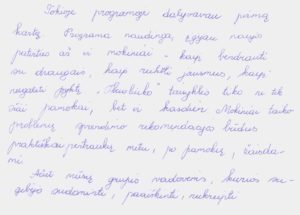 Tokioje programoje dalyvavau pirmą
kartą. Programa naudinga, įgyjau naujos
patirties aš ir mokiniai - kaip bendrauti
su draugais, kaip reikšti jausmus, kaip
negalėti pykti. taisyklės tiko ne tik
šiai pamokai, bet ir kasdien. Mokiniai taiko
problemų sprendimo rekomendacijas būdus
praktiškai pertraukų metu, po pamokų, žaisda-
mi.
Ačiū mūsų grupės vadovėms, kurios su-
gebėjo sudominti, paaiškinti, nukreipti